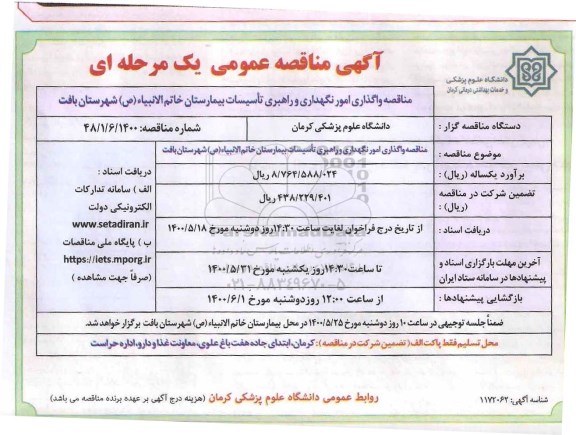 آگهی مناقصه عمومی یک مرحله ای
دانشگاه علوم پزشکی
و خدمات بهداشتی درمانی کرمان
مناقصه واگذاری امور نگهداری و راهبری تأسیسات بیمارستان خاتم الانبیاء (ص) شهرستان بافت
دستگاه مناقصه گزار : دانشگاه علوم پزشکی کرمان شماره مناقصه: ۴۸/۱/۶/۱۴۰۰
موضوع مناقصه : مناقصه واگذاری امور نگهداری و راهبری تأسیسات بیمارستان خاتم الانبیاء (ص) شهرستان بافت
برآورد یکساله (ریال) : ۸/۷۶۴/۵۸۸/۰۲۴ ریال
تضمین شرکت در مناقصه (ریال) : ۴۳۸/۲۲۹/۴۰۱ ریال
دریافت اسناد : از تاریخ درج فراخوان لغایت ساعت ۱۴:۳۰ روز دوشنبه مورخ ۱۴۰۰/۵/۱۸
آخرین مهلت بارگزاری اسناد و پیشنهادها در سامانه ستاد ایران تا ساعت ۱۴:۳۰ روز یکشنبه مورخ ۱۴۰۰/۵/۳۱
بازگشایی پیشنهادها : از ساعت ۱۲:۰۰ روز دوشنبه مورخ ۱۴۰۰/۶/۱
دریافت اسناد :
الف ) سامانه تدارکات
الکترونیکی دولت
www.setadiran.ir
ب ) پایگاه ملی مناقصات
https://iets.mporg.ir
(صرفاً جهت مشاهده )
ضمناً جلسه توجیهی در ساعت ۱۰ روز دوشنبه مورخ ۱۴۰۰/۵/۲۵ در محل بیمارستان خاتم الانبیاء (ص) شهرستان بافت برگزار خواهد شد.
محل تسلیم فقط پاکت الف ( تضمین شرکت در مناقصه ): کرمان، ابتدای جاده هفت باغ علوی، معاونت غذا و دارو، اداره حراست
شناسه آگهی: ۱۱۷۲۰۶۲ روابط عمومی دانشگاه علوم پزشکی کرمان (هزینه درج آگهی بر عهده برنده مناقصه می باشد)
۰۲۱-۸۸۳۴۹۶۷۰-۵